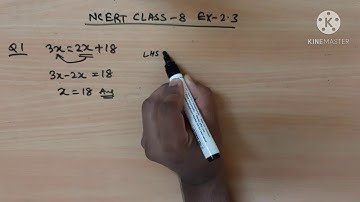 NCERT CLASS-8 EX-2.3
Q1 3x=2x+18
3x-2x = 18
x=18 Ans
LHS
KINEMASTER